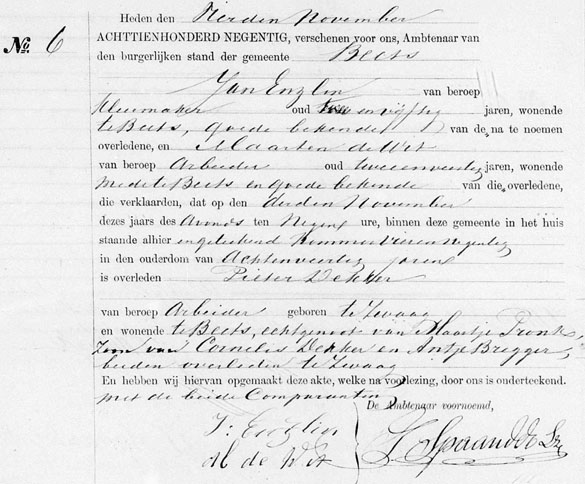 No. 6
Heden den Vierden November
ACHTTIENHONDERD NEGENTIG, verschenen voor ons, Ambtenaar van
den burgerlijken stand der gemeente Beets
Jan Enzlin van beroep
kleermaker oud en vijftig jaren, wonende
te Beets, goede bekende van de na te noemen
overledene, en Maarten de Wit
van beroep Arbeider oud tweeenveertig jaren, wonende
mede te Beets en goede bekende van die overledene,
die verklaren, dat op den derden November
dezes jaars des Avonds ten Negen ure, binnen deze gemeente in het huis
staande alhier ongeteekend Nommer Vierennegentig
in den ouderdom van Achtenveertig jaren
is overleden Pieter Dekker
van beroep Arbeider geboren te Zwaag
en wonende te Beets, echtgenoot van Maartje Tronk,
zoon van Cornelis Dekker en Antje Bregger,
beiden overleden te Zwaag
En hebben wij hiervan opgemaakt deze akte, welke na voorlezing, door ons is onderteekend.
met de beide Comparanten
De Ambtenaar voornoemd,
J: Enzlin
M de Wit